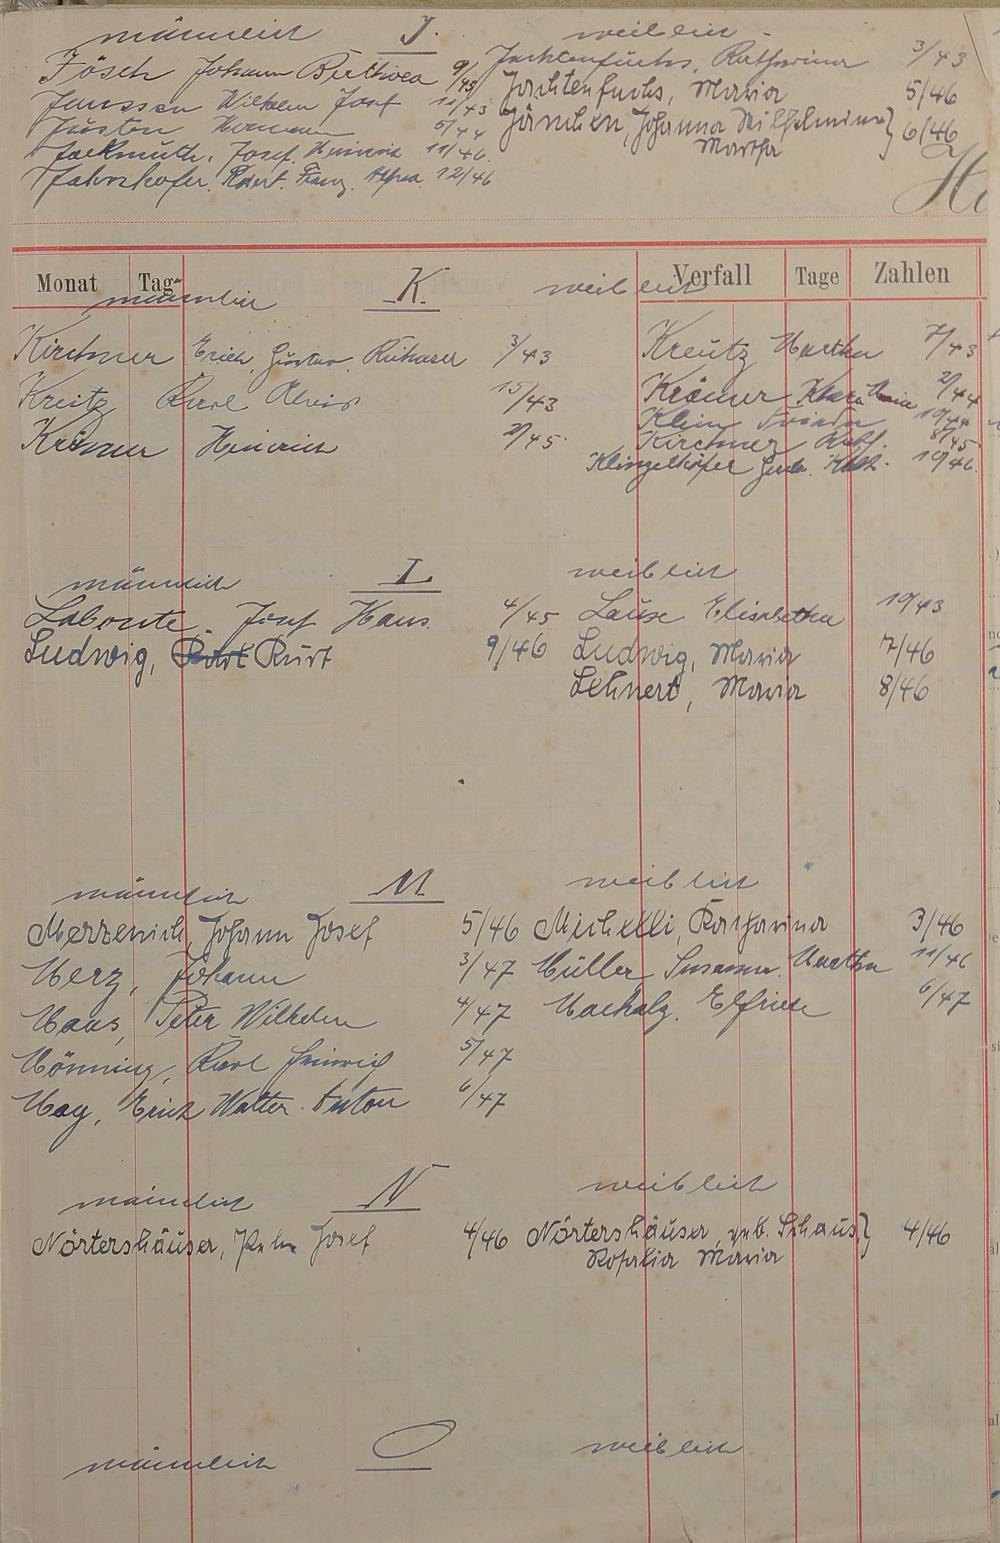 männlich J. weiblich
Jösch Johann Balthisa 9/43 Jachtenfuchs, Katharina 3/43
Janssen Wilhelm Josef 11/43 Jachtenfuchs, Maria 5/46
Justen Hermann 6/44 Jänchen, Johanna Wilhelmine } 6/46
Jackmuth, Josef, Heinrich 11/46 Martha
Jahnshofer, Robert Franz Alfred 12/46
Monat Tag Verfall Tage Zahlen
männlich K. weiblich
Kirchner Erich, Gustav, Richard 3/43 Kreutz Martha 7/43
Kreitz Karl Alois 15/43 Krämer 2/44
Klein Frieda 10/44
Krämer Heinrich 2/45 Kirchner Kath. 8/45
Klingelhöfer Kath. 10/46
männlich L. weiblich
Labonte Josef Hans. 4/45 Lause Elisabetha 10/43
Ludwig, Kurt 9/46 Ludwig, Maria 7/46
Lehnert, Maria 8/46
männlich M weiblich
Merzenich, Johann Josef 5/46 Michelli, Katharina 3/46
Merz, Johann 3/47 Müller, Susanna Martha 11/46
Maas, Peter Wilhelm 4/47 Machalz, Elfriede 6/47
Mönning, Karl Heinrich 5/47
May, Erich Walter Anton 6/47
männlich N weiblich
Nörtershäuser, Josef 4/46 Nörtershäuser, geb. Schaus } 4/46
Rosalia Maria
männlich O weiblich